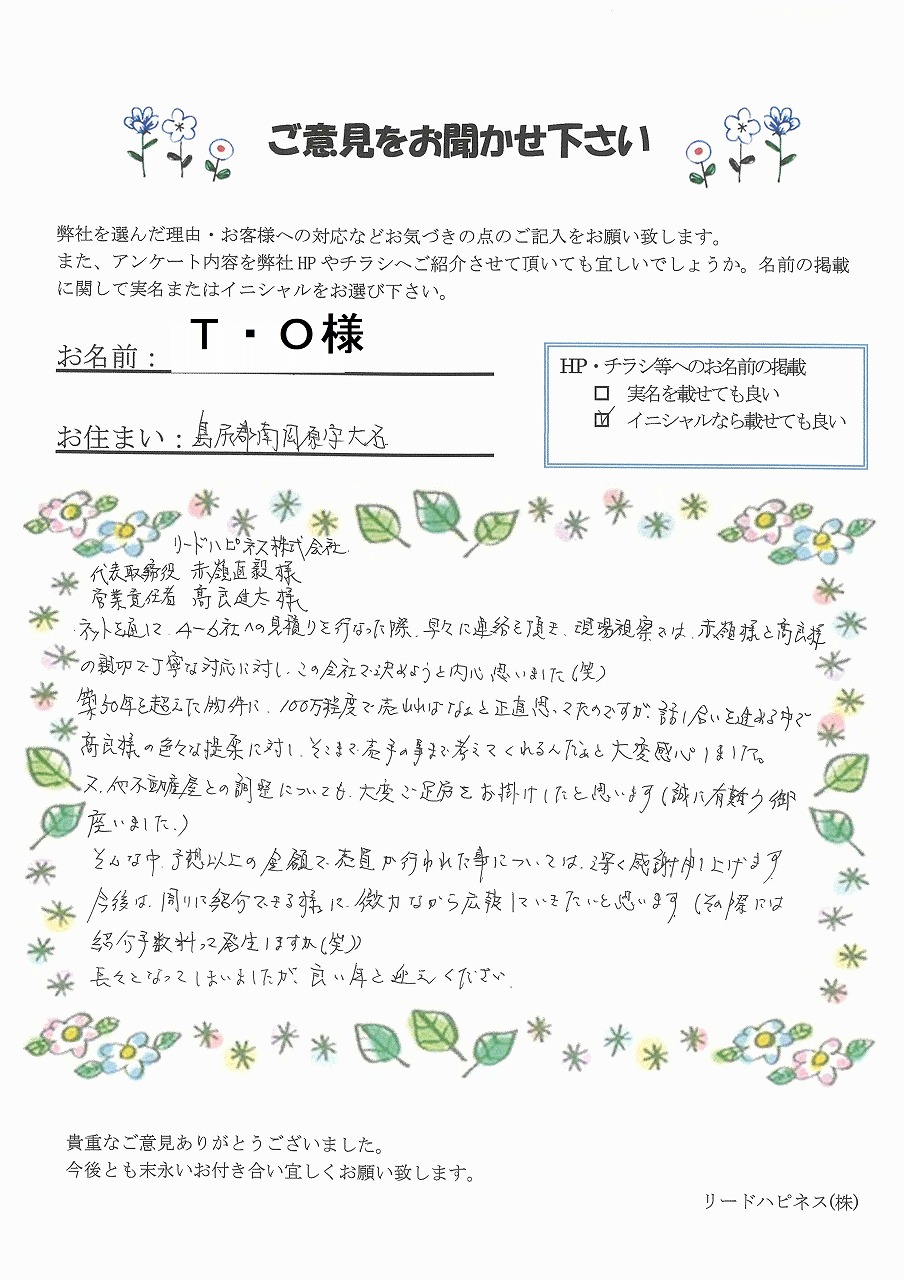 ご意見をお聞かせ下さい
弊社を選んだ理由・お客様への対応などお気づきの点のご記入をお願い致します。
また、アンケート内容を弊社HPやチラシへご紹介させて頂いても宜しいでしょうか。名前の掲載
に関して実名またはイニシャルをお選び下さい。
お名前：T・O様
HP・チラシ等へのお名前の掲載
□ 実名を載せても良い
☑ イニシャルなら載せても良い
お住まい：島尻郡南風原字大名
リードハピネス株式会社
代表取締役 赤嶺直毅様
営業責任者 高良健太様
ネットを通じて、4〜6社への見積りを行なった際、早々に連絡を頂き、現場視察では、赤嶺様と高良様
の親切で丁寧な対応に対し、この会社で決めようと内心思いました（笑）
築50年を超えた物件に、100万程度で売れればなぁと正直思ってたのですが、話し合いを進める中で
高良様の色々な提案に対し、そこまで若手の事まで考えてくれるんだぁと大変感心しました。
又、他不動産屋との調整についても、大変ご足労をお掛けしたと思います（誠に有難う御
座いました。）
そんな中、予想以上の金額で売買が行われた事については、深く感謝申し上げます
今後は、周りに紹介できる様に、微力ながら広報していきたいと思います（その際には
紹介手数料って発生しますか（笑））
長々となってしまいましたが、良い年を迎えください。
貴重なご意見ありがとうございました。
今後とも末永いお付き合い宜しくお願い致します。
リードハピネス(株)